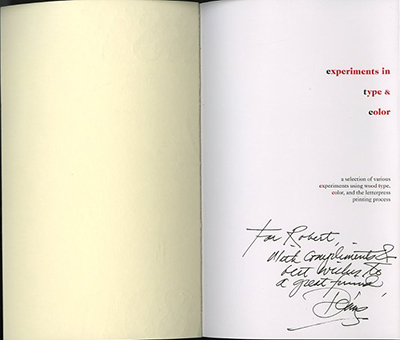 experiments in
type &
color
a selection of various
experiments using wood type,
color, and the letterpress
printing process
For Robert,
With Compliments &
best wishes to
a great friend